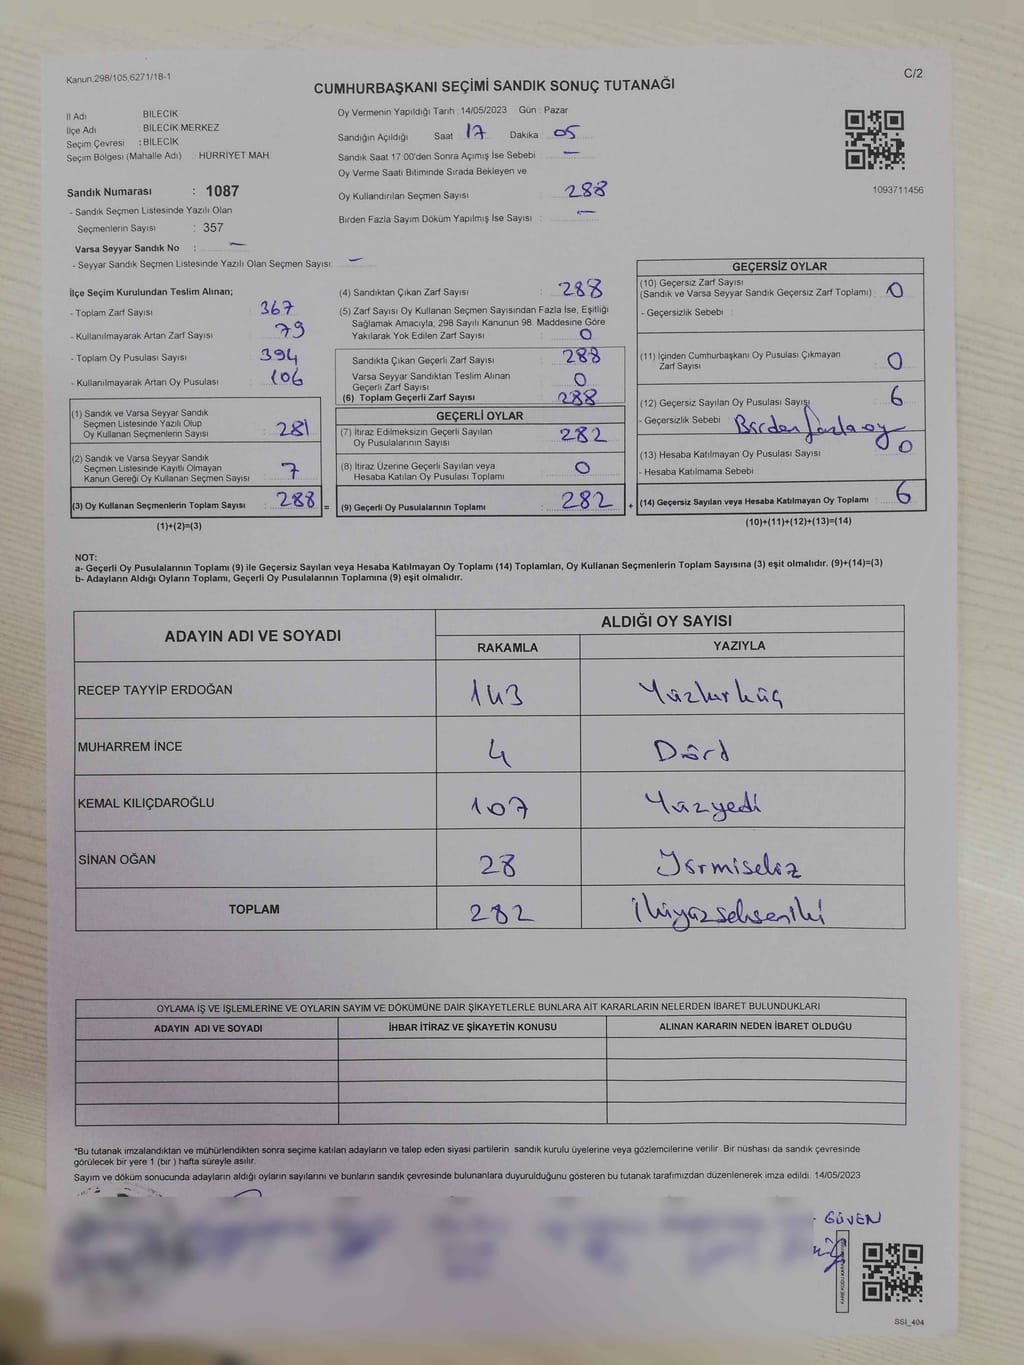 Kanun.298/105,6271/18-1
C/2
CUMHURBAŞKANI SEÇİMİ SANDIK SONUÇ TUTANAĞI
İl Adı BİLECİK
İlçe Adı : BİLECİK MERKEZ
Seçim Çevresi : BİLECİK
Seçim Bölgesi (Mahalle Adı) : HÜRRİYET MAH.
Sandık Numarası : 1087
- Sandık Seçmen Listesinde Yazılı Olan
Seçmenlerin Sayısı : 357
Varsa Seyyar Sandık No : -
- Seyyar Sandık Seçmen Listesinde Yazılı Olan Seçmen Sayısı: -
Oy Vermenin Yapıldığı Tarih : 14/05/2023 Gün : Pazar
Sandığın Açıldığı Saat 17 Dakika 05
Sandık Saat 17 00'den Sonra Açımış İse Sebebi : -
Oy Verme Saati Bitiminde Sırada Bekleyen ve
Oy Kullandırılan Seçmen Sayısı : 288
Birden Fazla Sayım Döküm Yapılmış İse Sayısı : -
1093711456
İlçe Seçim Kurulundan Teslim Alınan;
- Toplam Zarf Sayısı : 367
- Kullanılmayarak Artan Zarf Sayısı : 79
- Toplam Oy Pusulası Sayısı : 394
- Kullanılmayarak Artan Oy Pusulası : 106
(1) Sandık ve Varsa Seyyar Sandık
Seçmen Listesinde Yazılı Olup
Oy Kullanan Seçmenlerin Sayısı : 281
(2) Sandık ve Varsa Seyyar Sandık
Seçmen Listesinde Kayıtlı Olmayan
Kanun Gereği Oy Kullanan Seçmen Sayısı : 7
(3) Oy Kullanan Seçmenlerin Toplam Sayısı : 288 =
(1)+(2)=(3)
(4) Sandıktan Çıkan Zarf Sayısı : 288
(5) Zarf Sayısı Oy Kullanan Seçmen Sayısından Fazla İse, Eşitliği
Sağlamak Amacıyla; 298 Sayılı Kanunun 98. Maddesine Göre
Yakılarak Yok Edilen Zarf Sayısı : 0
Sandıkta Çıkan Geçerli Zarf Sayısı : 288
Varsa Seyyar Sandıktan Teslim Alınan
Geçerli Zarf Sayısı : 0
(6) Toplam Geçerli Zarf Sayısı : 288
GEÇERLİ OYLAR
(7) İtiraz Edilmeksizin Geçerli Sayılan
Oy Pusulalarının Sayısı : 282
(8) İtiraz Üzerine Geçerli Sayılan veya
Hesaba Katılan Oy Pusulası Toplamı : 0
(9) Geçerli Oy Pusulalarının Toplamı : 282 +
GEÇERSİZ OYLAR
(10) Geçersiz Zarf Sayısı
(Sandık ve Varsa Seyyar Sandık Geçersiz Zarf Toplamı) : 0
- Geçersizlik Sebebi :
(11) İçinden Cumhurbaşkanı Oy Pusulası Çıkmayan
Zarf Sayısı : 0
(12) Geçersiz Sayılan Oy Pusulası Sayısı : 6
- Geçersizlik Sebebi : Birden fazla oy
(13) Hesaba Katılmayan Oy Pusulası Sayısı : 0
- Hesaba Katılmama Sebebi :
(14) Geçersiz Sayılan veya Hesaba Katılmayan Oy Toplamı : 6
(10)+(11)+(12)+(13)=(14)
NOT:
a- Geçerli Oy Pusulalarının Toplamı (9) ile Geçersiz Sayılan veya Hesaba Katılmayan Oy Toplamı (14) Toplamları, Oy Kullanan Seçmenlerin Toplam Sayısına (3) eşit olmalıdır. (9)+(14)=(3)
b- Adayların Aldığı Oyların Toplamı, Geçerli Oy Pusulalarının Toplamına (9) eşit olmalıdır.
ADAYIN ADI VE SOYADI ALDIĞI OY SAYISI
RAKAMLA YAZIYLA
RECEP TAYYİP ERDOĞAN 143 Yüzkırküç
MUHARREM İNCE 4 Dörd
KEMAL KILIÇDAROĞLU 107 Yüzyedi
SİNAN OĞAN 28 Yirmisekiz
TOPLAM 282 İkiyüzsekseniki
OYLAMA İŞ VE İŞLEMLERİNE VE OYLARIN SAYIM VE DÖKÜMÜNE DAİR ŞİKAYETLERLE BUNLARA AİT KARARLARIN NELERDEN İBARET BULUNDUKLARI
ADAYIN ADI VE SOYADI İHBAR İTİRAZ VE ŞİKAYETİN KONUSU ALINAN KARARIN NEDEN İBARET OLDUĞU
*Bu tutanak imzalandıktan ve mühürlendikten sonra seçime katılan adayların ve talep eden siyasi partilerin sandık kurulu üyelerine veya gözlemcilerine verilir. Bir nüshası da sandık çevresinde
görülecek bir yere 1 (bir ) hafta süreyle asılır.
Sayım ve döküm sonucunda adayların aldığı oyların sayılarını ve bunların sandık çevresinde bulunanlara duyurulduğunu gösteren bu tutanak tarafımızdan düzenlenerek imza edildi. 14/05/2023
GÜVEN
SSİ_404